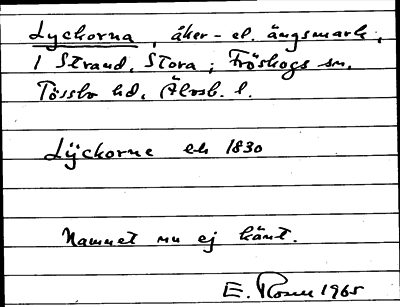 Lyckorna, åker- el. ängsmark,
i Strand, Stora; Fröskogs sn,
Tössbo hd, Älvsb. l.
Lyckorne eh 1830
Namnet nu ej känt.
E. Rosen 1965